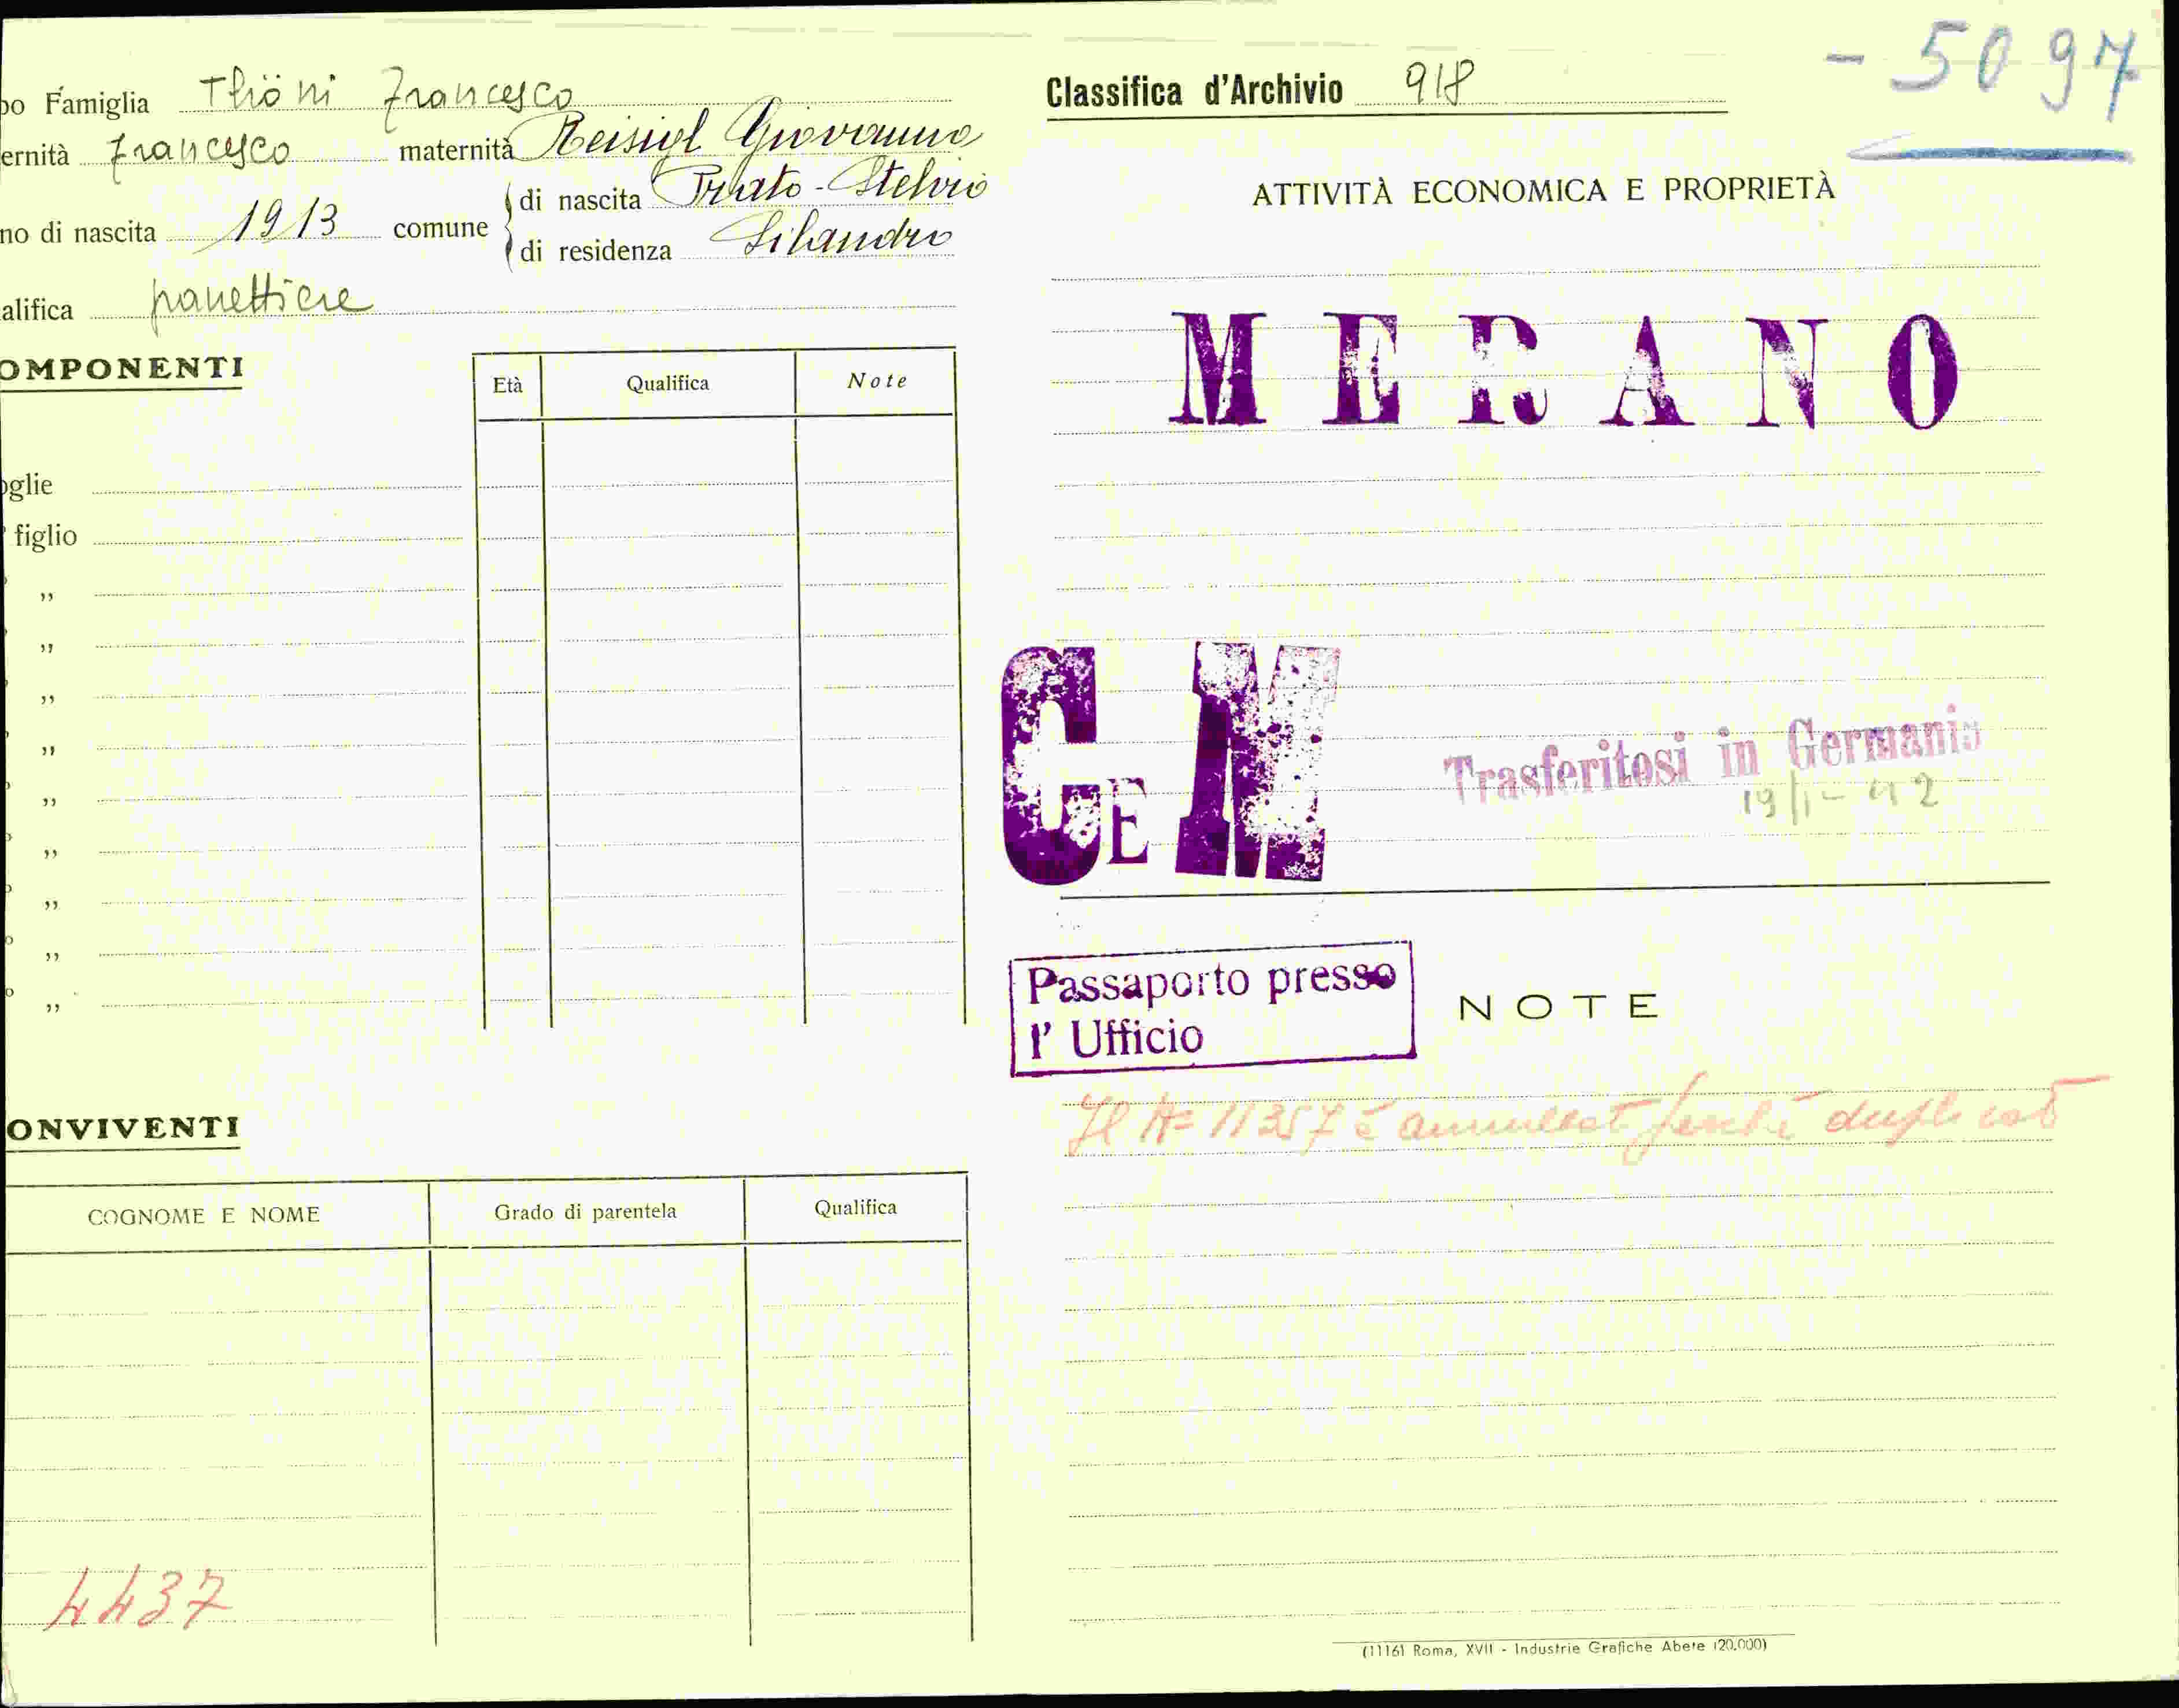 po Famiglia Thöni Francesco
ernità Francesco maternità Reisigl Giovanna
no di nascita 1913 comune di nascita Prato-Stelvio
di residenza Silandro
alifica panettiere
OMPONENTI
Età Qualifica Note
oglie
figlio
„
„
„
„
„
„
„
„
„
ONVIVENTI
COGNOME E NOME Grado di parentela Qualifica
4437
Classifica d'Archivio 918
- 5097
ATTIVITÀ ECONOMICA E PROPRIETÀ
MERANO
CEM
Trasferitosi in Germania
19/1-42
Passaporto presso
l' Ufficio
NOTE
Il N= 11357 è annullat perché duplicat
(1116) Roma, XVII - Industrie Grafiche Abete (20.000)